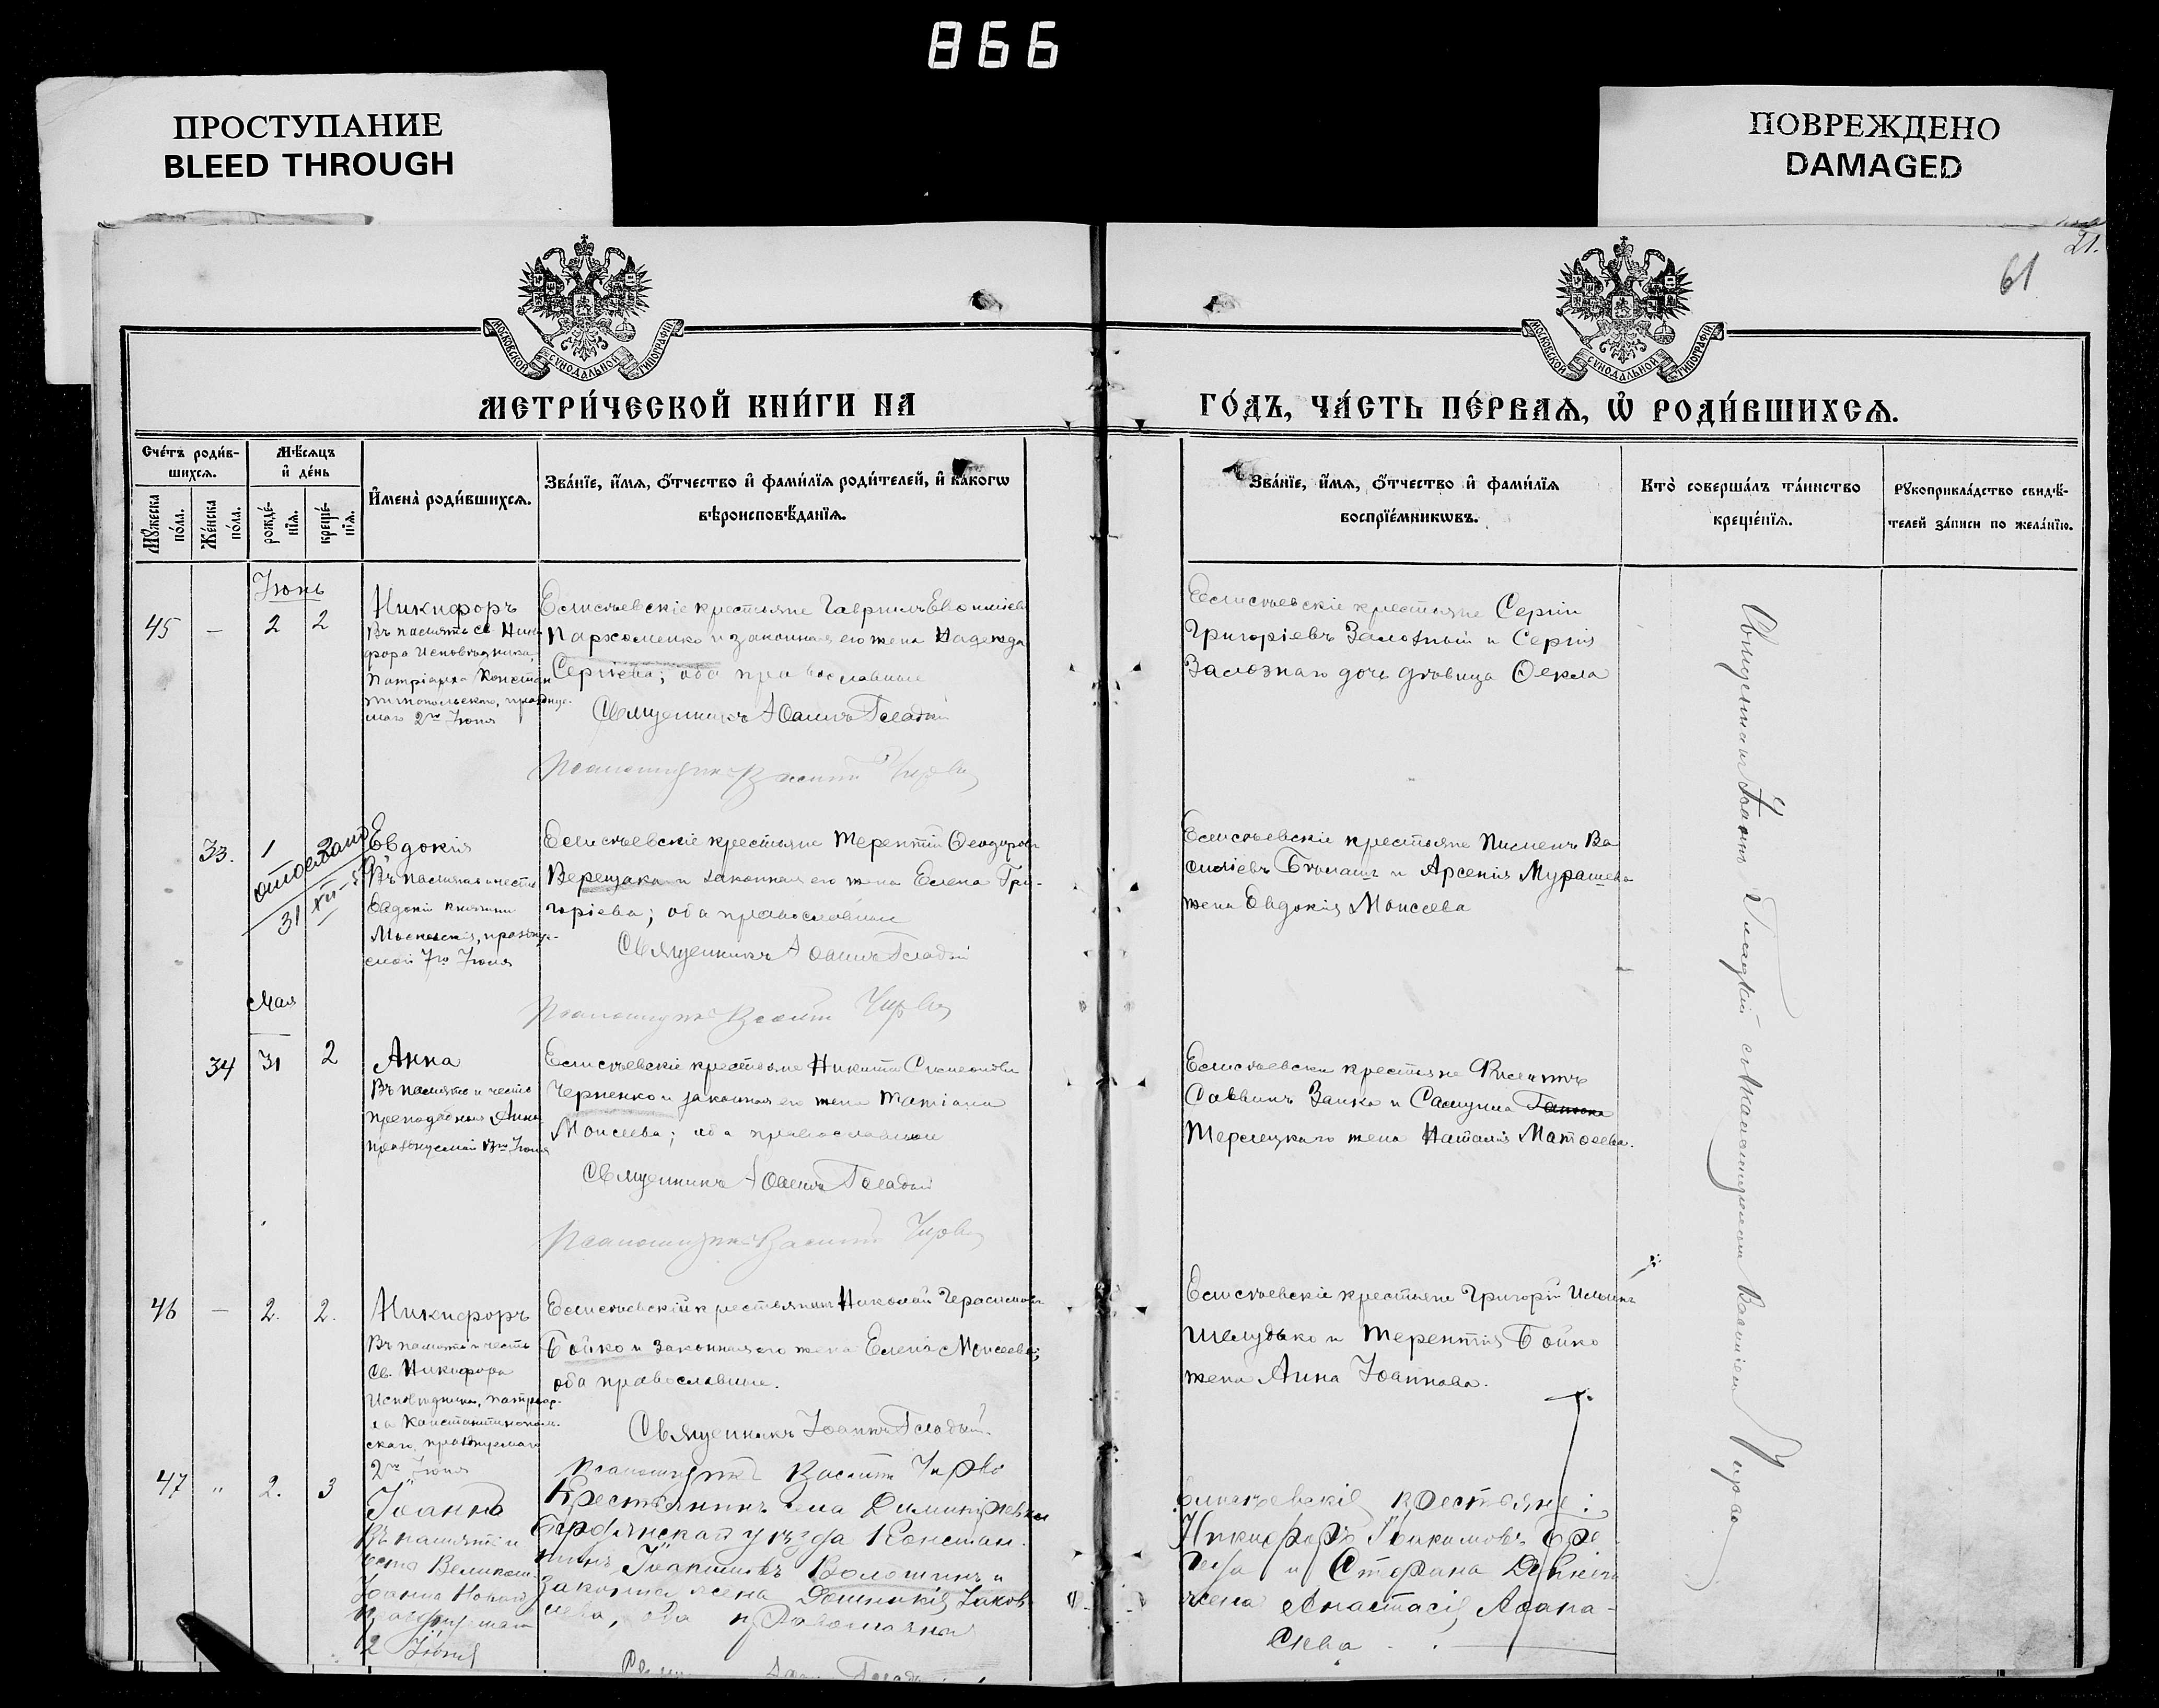 866
ПРОСТУПАНИЕ
BLEED THROUGH
ПОВРЕЖДЕНО
DAMAGED
21.
61
МОСКОВСКОЙ СУНОДАЛЬНОЙ ТИПОГРАФІИ
МОСКОВСКОЙ СУНОДАЛЬНОЙ ТИПОГРАФІИ
МЕТРИ́ЧЕСКОЙ КНИ́ГИ НА
ГО́ДЪ, ЧА́СТЬ ПЕ́РВАЯ, Ѡ҆ РОДИ́ВШИХСЯ.
Сче́тъ роди́в-
шихся.
Мѣ́сяцъ
и҆ де́нь
Мꙋ́жеска
по́ла.
Же́нска
по́ла.
рожде́-
нїя.
креще́-
нїя.
И҆мена̀ роди́вшихся.
Зва́нїе, и҆́мя, ѻ҆́тчество и҆ фами́лїя роди́телей, и҆ како́гѡ
вѣроисповѣ́данїя.
Зва́нїе, и҆́мя, ѻ҆́тчество и҆ фами́лїя
воспрїе́мникѡвъ.
Кто̀ соверша́лъ та́инство
креще́нїя.
Рꙋкоприкла́дство свидѣ́-
телей за́писи по жела́нїю.
Іюнь
45 — 2 2
Никифоръ
Въ память св. Ники
фора Исповѣдника,
Патріарха Констан
тинопольскаго, праздну-
маго 2го Іюня
Елисѣевскіе крестьяне Гавріилъ Евфиміевъ
Пархоменко и законная его жена Надежда
Сергіева; оба православные
Священникъ Іоаннъ Гладкій
Псаломщикъ Василій Чирва
Елисѣевскіе крестьяне Сергій
Григоріевъ Залозный и Сергія
Залознаго дочь дѣвица Ѳекла
33. 1 2
отослано
31
Евдокія
Въ память и честь
Евдокіи Княгини
Московскія, праздну-
емой 7го Іюля
Елисѣевскіе крестьяне Терентій Ѳеодоровъ
Верещака и законная его жена Елена Гри-
горіева; оба православные
Священникъ Іоаннъ Гладкій
Псаломщикъ Василій Чирва
Елисѣевскіе крестьяне Пименъ Ва
силіевъ и Арсенія Мурашева
жена Евдокія Моисеева
Мая
34 31 2
Анна
Въ память и честь
преподобныя Анны
празднуемой Іюня
Елисѣевскіе крестьяне Никита Симеоновъ
Черненко и законная его жена Татіана
Моисеева; оба православные
Священникъ Іоаннъ Гладкій
Псаломщикъ Василій Чирва
Елисѣевскіе крестьяне Филиппъ
Саввинъ Заика и Самуила
Терлецкаго жена Наталія Матѳеева.
46 — 2. 2.
Никифоръ
Въ память и честь
Св. Никифора
Исповѣдника, патріар-
ха Константинополь-
скаго, празднуемаго
2го Іюня
Елисѣевскій крестьянинъ Николай Герасимовъ
Бойко и законная его жена Елена Моисеева;
оба православные.
Священникъ Іоаннъ Гладкій.
Псаломщикъ Василій Чирва
Елисѣевскіе крестьяне Григорій Ильинъ
Шелудько и Терентія Бойко
жена Анна Іоаннова.
47 " 2. 3
Іоаннъ
Въ память и
честь Великом.
Іоанна Новаго
2 Іюня
Крестьянинъ села
Бердянскаго уѣзда Констан-
тинъ Іоакимовъ Волошинъ и
законная жена Домникія Іаков-
лева, оба православные
Елисѣевскіе крестьяне:
Никифоръ
и Стефана
жена Анастасія Аѳана-
сіева
Священникъ Іоаннъ Гладкій съ псаломщикомъ Василіемъ Чирвою